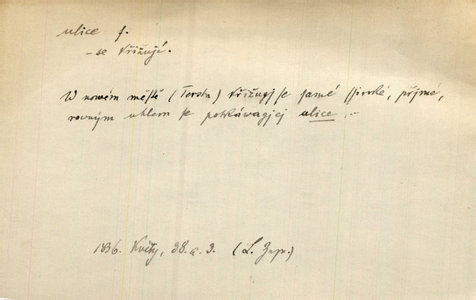 ulice f.
- se křižují.
W nowém městě (Terstu) křižugj se samé ssiroké, přjmé,
rowným uhlem se potkáwagjcj ulice ...
1836. Květy, 38. a. 3. (L. Zap.)